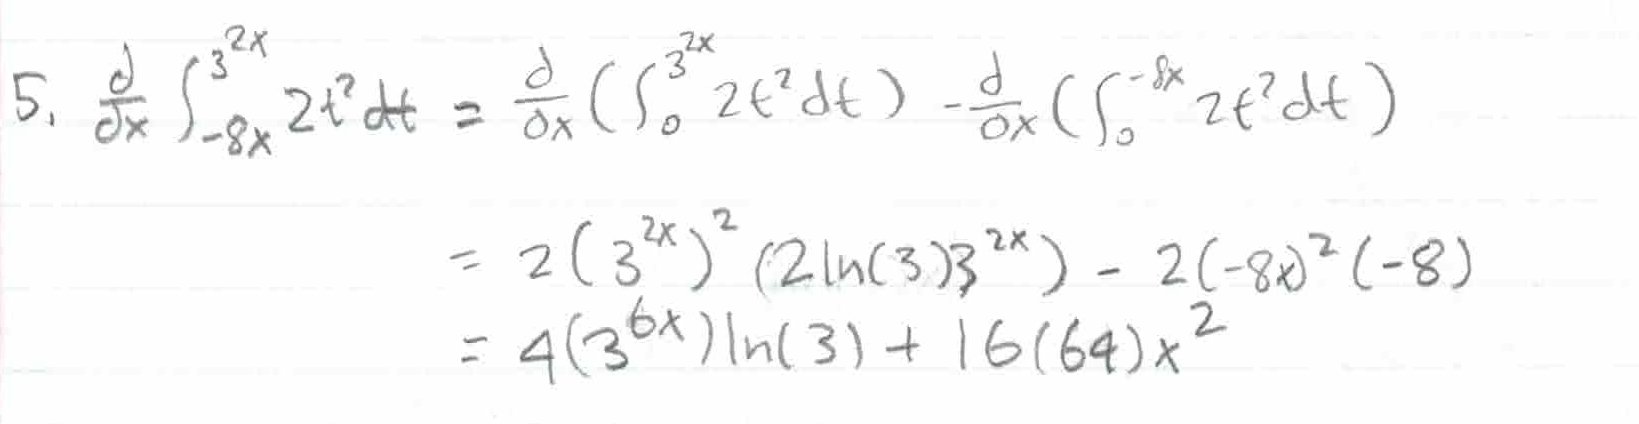 5. d/dx ∫_{-8x}^{3^{2x}} 2t² dt = d/dx (∫_0^{3^{2x}} 2t² dt) - d/dx (∫_0^{-8x} 2t² dt)
= 2(3^{2x})² (2ln(3)3^{2x}) - 2(-8x)² (-8)
= 4(3^{6x})ln(3) + 16(64)x²